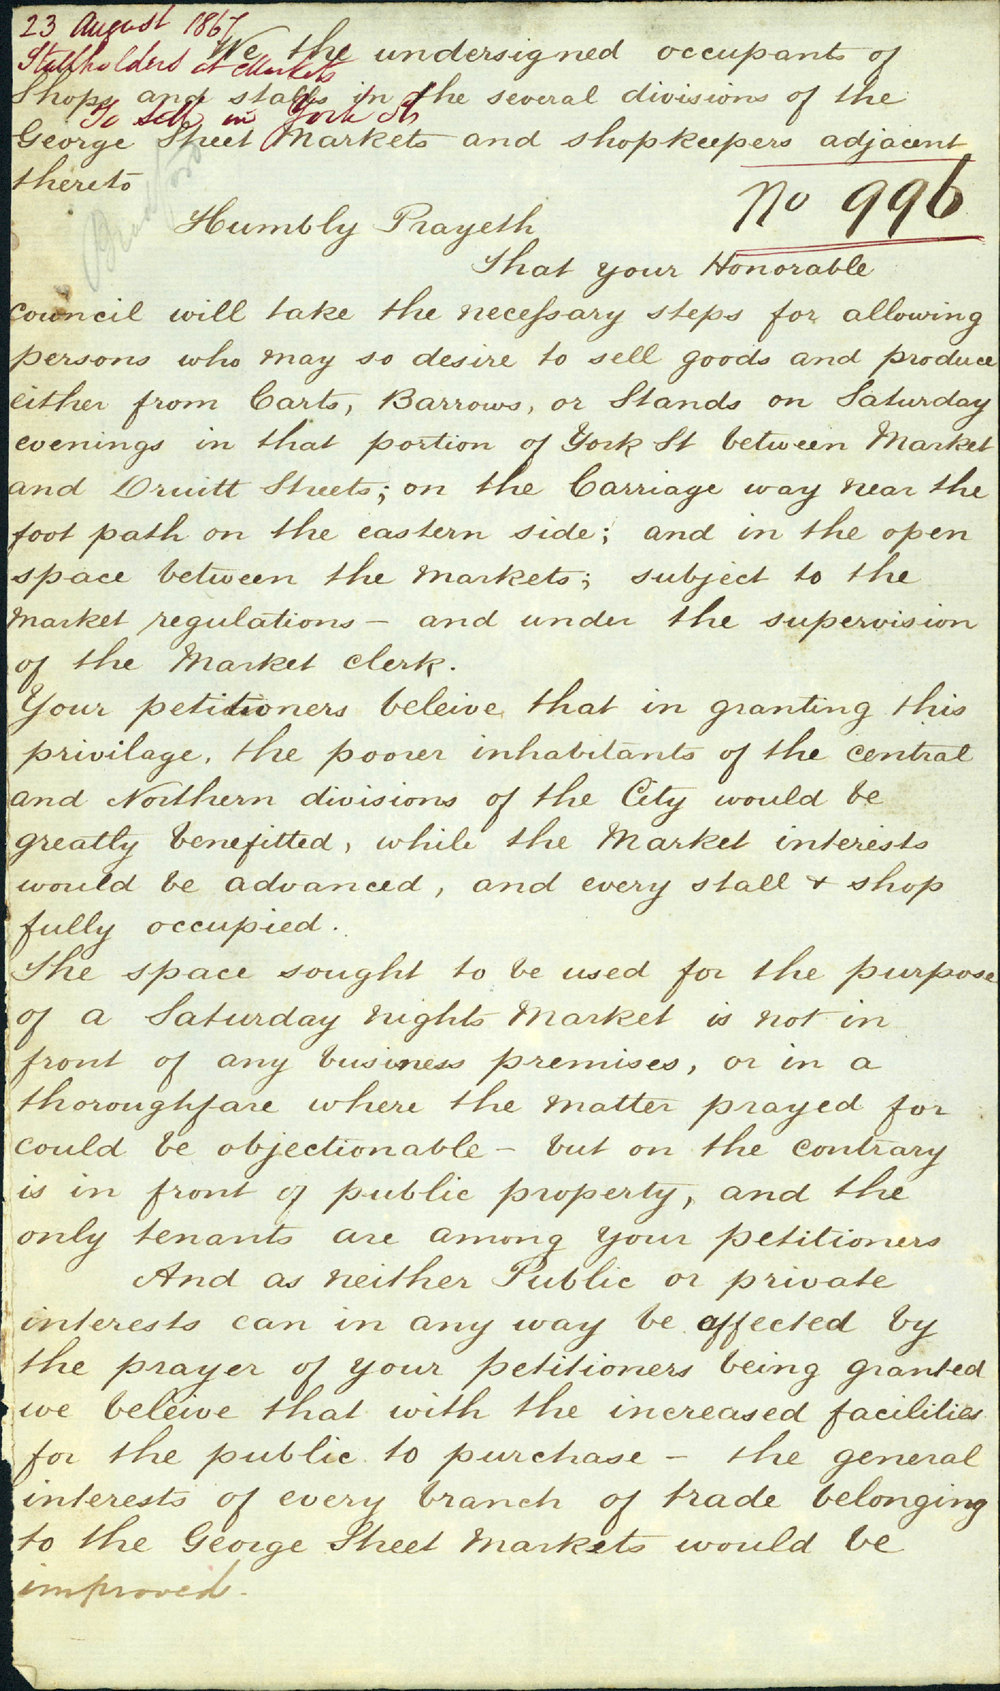 23 August 1867
Stallholders at Markets
To sell in York St
We the undersigned occupants of
Shops and stalls in the several divisions of the
George Street Markets and shopkeepers adjacent
thereto
No 996
Humbly Prayeth
That your Honorable
council will take the necessary steps for allowing
persons who may so desire to sell goods and produce
either from Carts, Barrows, or Stands on Saturday
evenings in that portion of York St between Market
and Druitt Streets; on the Carriage way near the
foot path on the eastern side; and in the open
space between the Markets; subject to the
Market regulations – and under the supervision
of the Market Clerk.
Your petitioners beleive that in granting this
privilage, the poorer inhabitants of the central
and Northern divisions of the City would be
greatly benefitted, while the Market interests
would be advanced, and every stall & shop
fully occupied.
The space sought to be used for the purpose
of a Saturday nights Market is not in
front of any business premises, or in a
thoroughfare where the matter prayed for
could be objectionable – but on the contrary
is in front of public property, and the
only tenants are among your petitioners
And as neither Public or private
interests can in any way be affected by
the prayer of your petitioners being granted
we beleive that with the increased facilities
for the public to purchase – the general
interests of every branch of trade belonging
to the George Street Markets would be
improved.